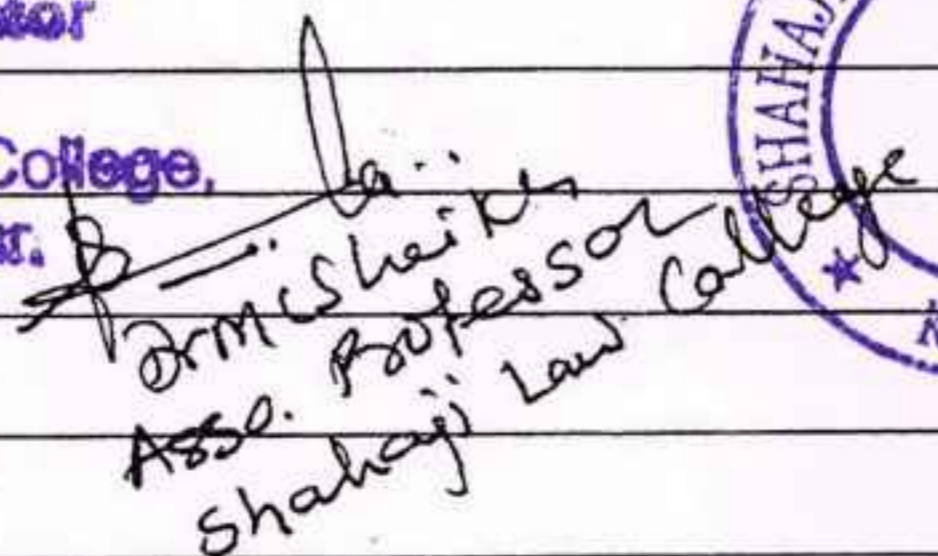 College,
Dr M C Sheikh
Asso. Professor
Shahaji Law College
SHAHAJ